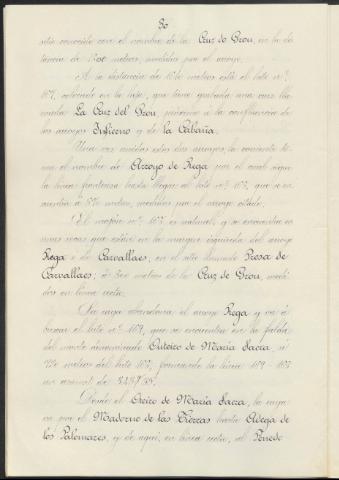 30
sitio conocido con el nombre de la Cruz do Grou, en la dis
tancia de metros, medidos por el arroyo.
A la distancia de metros está el hito nº
167, colocado en la laje, que tiene grabada una cruz lla
mada La Cruz del Grou, próximo á la confluencia de
los arroyos Infierno y de la Cabaña.
Una vez unidos estos dos arroyos la corriente to
ma el nombre de Arroyo de Rega por el cual sigue
la línea fronteriza hasta llegar al hito nº 168, que se en
cuentra á metros, medidos por el arroyo citado.
El mojón nº 168 es natural, y se encuentra en
unas rocas que están en la margen izquierda del arroyo
Rega ó de Carvallaes, en el sitio llamado Presa de
Carvallaes; á metros de la Cruz de Grou, medi
dos en línea recta.
La raya abandona el arroyo Rega y va á
buscar el hito nº 169, que se encuentra en la falda
del monte denominado Outeiro de María Sacra, á
metros del hito 168, formando la línea 169 - 168
un azimut de
Desde el Oteiro de María Sacra, la raya
va por el Maderno de las Tierras hasta Adega de
los Palomares, y de aquí, en línea recta, al Penedo